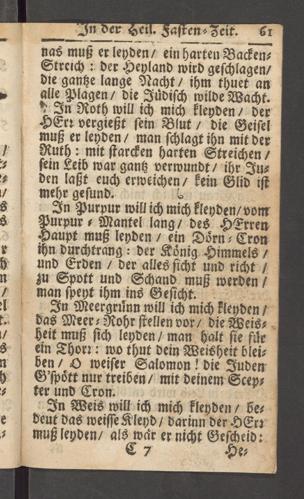 In der Heil. Fasten-Zeit. 61
nas muß er leyden / ein harten Backen-
Streich : der Heyland wird geschlagen /
die gantze lange Nacht / ihm thuet an
alle Plagen / die Jüdisch wilde Wacht.
In Roth will ich mich kleyden / der
HErr vergießt sein Blut / die Geisel
muß er leyden / man schlagt ihn mit der
Ruth : mit starcken harten Streichen /
sein Leib war gantz verwundt / ihr Ju-
den laßt euch erweichen / kein Glid ist
mehr gesund.
In Purpur will ich mich kleyden / vom
Purpur-Mantel lang / des HErren
Haupt muß leyden / ein Dörn-Cron
ihn durchtrang : der König Himmels /
und Erden / der alles sicht und richt /
zu Spott und Schand muß werden /
man speyt ihm ins Gesicht.
In Meergrünn will ich mich kleyden /
das Meer-Rohr stellen vor / die Weis-
heit muß sich leyden / man halt sie für
ein Thor: : wo thut dein Weisheit blei-
ben / O weiser Salomon ! die Juden
G'spött nur treiben / mit deinem Scep-
ter und Cron.
In Weis will ich mich kleyden / be-
deut das weisse Kleyd / darinn der HErr
muß leyden / als wär er nicht Gescheid:
C 7 He-